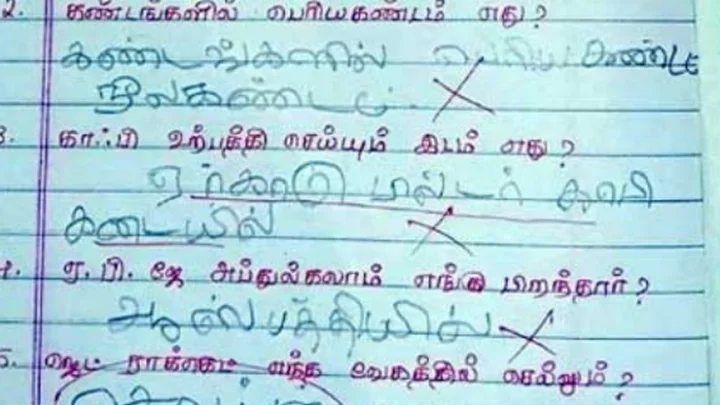 2. கண்டங்களில் பெரியகண்டம் எது?
கண்டங்களில் பெரிய கண்டம்
நீலகண்டம்.
3. காஃபி உற்பத்தி செய்யும் இடம் எது?
ஏர்காடு மாஸ்டர் காபி
கடையில்
4. ஏ.பி.ஜே அப்துல்கலாம் எங்கு பிறந்தார்?
ஆஸ்பத்தியில்
5. ஜெட் ராக்கெட் எந்த வேகத்தில் செல்லும்?